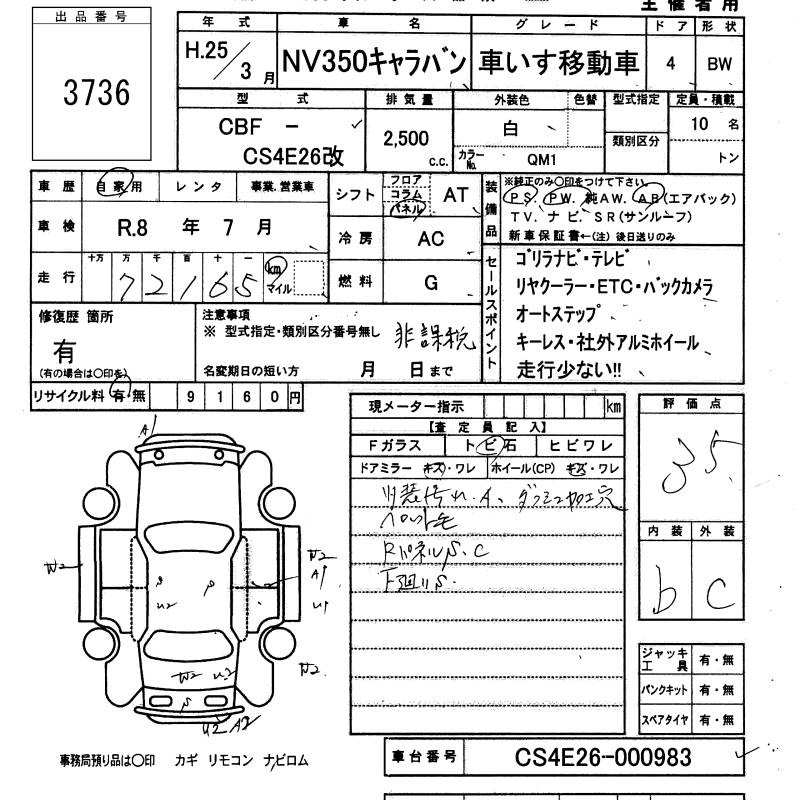 主催者用
出品番号
3736
年式 車名 グレード ドア 形状
H.25/3月 NV350キャラバン 車いす移動車 4 BW
型式 排気量 外装色 色替 型式指定 定員・積載
CBF - CS4E26改
2,500 c.c.
白
カラーNo. QM1
類別区分
10 名
トン
車歴 自家用 レンタ 事業、営業車
車検 R.8 年 7 月
走行 十万 万 千 百 十 一
72165 km マイル
シフト フロア コラム パネル AT
冷房 AC
燃料 G
装備品
※純正のみ○印をつけて下さい。
PS、PW、純AW、AB(エアバック)
TV、ナビ、SR(サンルーフ)
新車保証書←(注)後日送りのみ
セールスポイント
ゴリラナビ・テレビ
リヤクーラー・ETC・バックカメラ
オートステップ
キーレス・社外アルミホイール
走行少ない!!
修復歴 箇所
有
(有の場合は○印を)
注意事項
※ 型式指定・類別区分番号無し 非課税
名変期日の短い方 月 日まで
リサイクル料 有・無 9160円
現メーター指示 km
【査定員記入】
Fガラス トビ石 ヒビワレ
ドアミラー キズ・ワレ ホイール(CP) キズ・ワレ
内装汚れ、A、ダッシュ加工穴
ペット毛
RパネルS、C
下廻りS、
評価点
35
内装 外装
b C
ジャッキ工具 有・無
パンクキット 有・無
スペアタイヤ 有・無
A1
W2
W2
A1
U1
U2
W2 U2
W2
U2 A2
事務局預り品は○印 カギ リモコン ナビロム
車台番号 CS4E26-000983